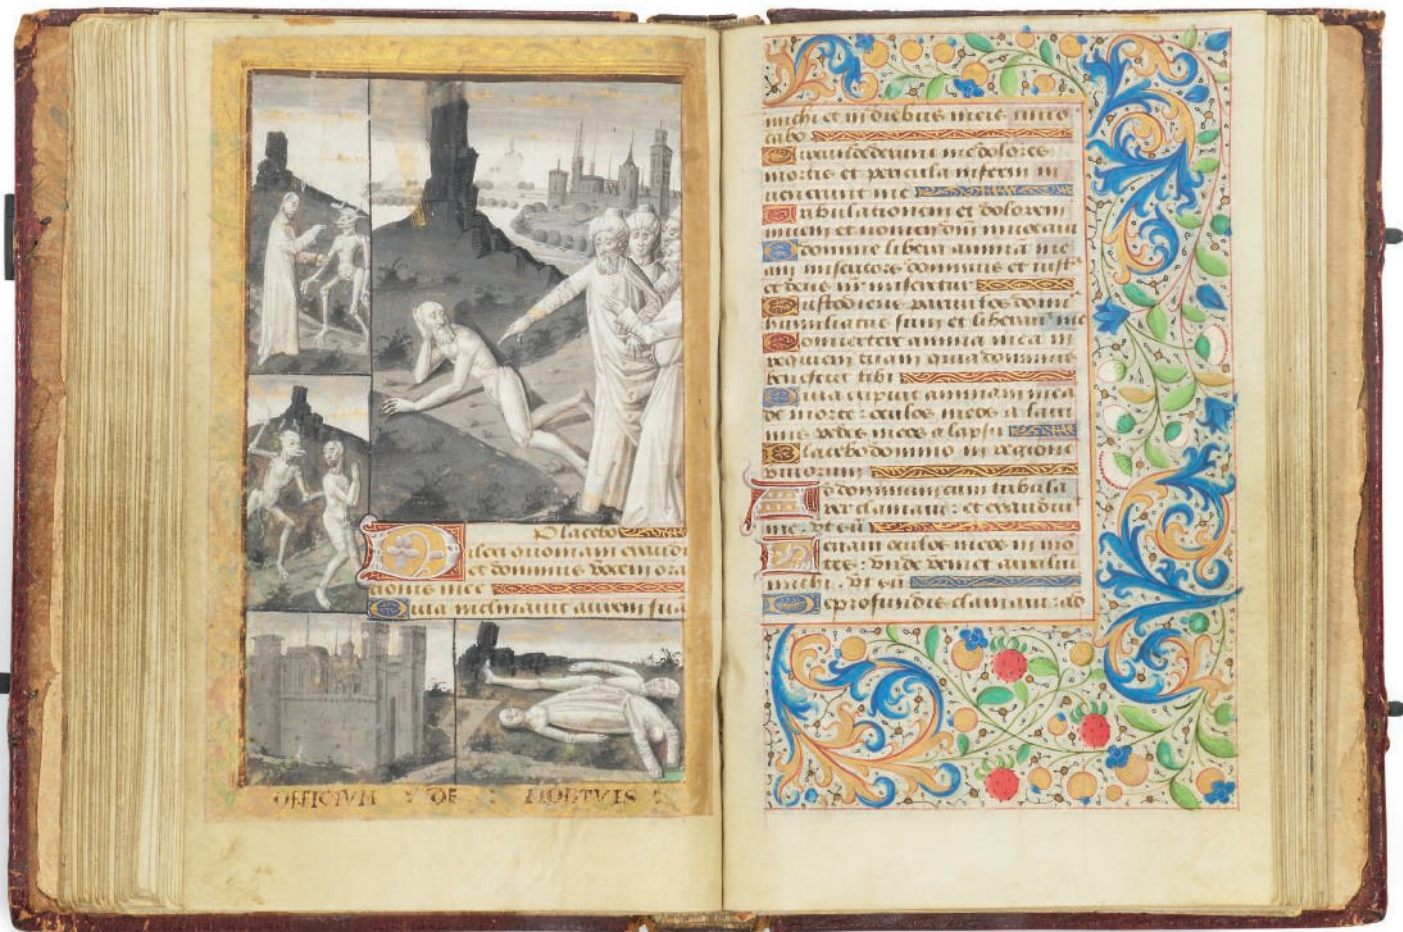 Placebo
Dilexi quoniam exaudi
et dominus vocem ora
tionis mee
Quia inclinauit aurem sua
OFFICIVM : DE : MORTVIS :
michi et in diebus meis inuo
cabo
Circundederunt me dolores
mortis et pericula inferni in
uenerunt me
Tribulationem et dolorem
inueni et nomen
O domine libera anima me
am misericors dominus et iust
et deus nr miseretur
Custodiens paruulos domi
humiliatus sum et liberauit me
Conuertere anima mea in
requiem tuam quia dominus
benefecit tibi
Quia eripuit animam mea
de morte : oculos meos a lacri
mis pedes meos a lapsu
Placebo domino in regione
viuorum
Ad dominum cum tribula
rer clamaui : et exaudiuit
me.
Leuaui oculos meos in mo
tes : vnde veniet auxiliu
michi.
De profundis clamaui : ad